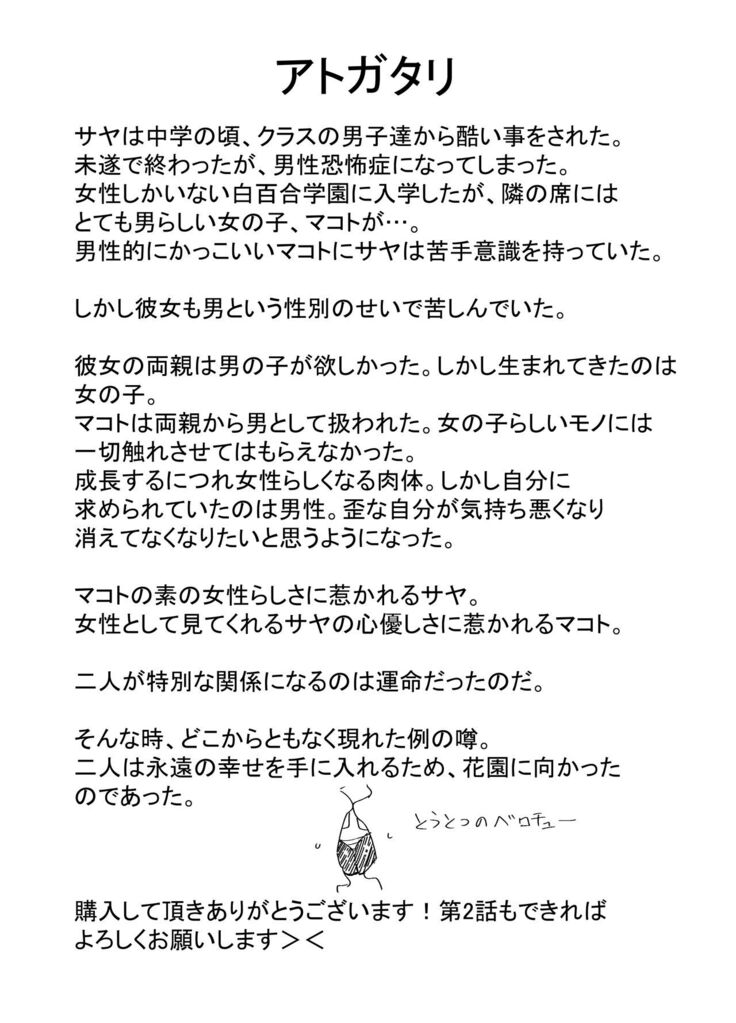 アトガタリ
サヤは中学の頃、クラスの男子達から酷い事をされた。
未遂で終わったが、男性恐怖症になってしまった。
女性しかいない白百合学園に入学したが、隣の席には
とても男らしい女の子、マコトが…。
男性的にかっこいいマコトにサヤは苦手意識を持っていた。
しかし彼女も男という性別のせいで苦しんでいた。
彼女の両親は男の子が欲しかった。しかし生まれてきたのは
女の子。
マコトは両親から男として扱われた。女の子らしいモノには
一切触れさせてはもらえなかった。
成長するにつれ女性らしくなる肉体。しかし自分に
求められていたのは男性。歪な自分が気持ち悪くなり
消えてなくなりたいと思うようになった。
マコトの素の女性らしさに惹かれるサヤ。
女性として見てくれるサヤの心優しさに惹かれるマコト。
二人が特別な関係になるのは運命だったのだ。
そんな時、どこからともなく現れた例の噂。
二人は永遠の幸せを手に入れるため、花園に向かった
のであった。
とうとつのベロチュー
購入して頂きありがとうございます！第2話もできれば
よろしくお願いします＞＜